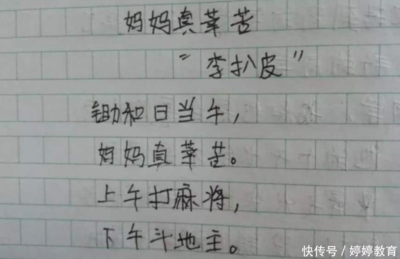 妈妈真辛苦
“李扒皮”
锄和日当午，
妈妈真辛苦。
上午打麻将，
下午斗地主。
快传号/婷婷教育